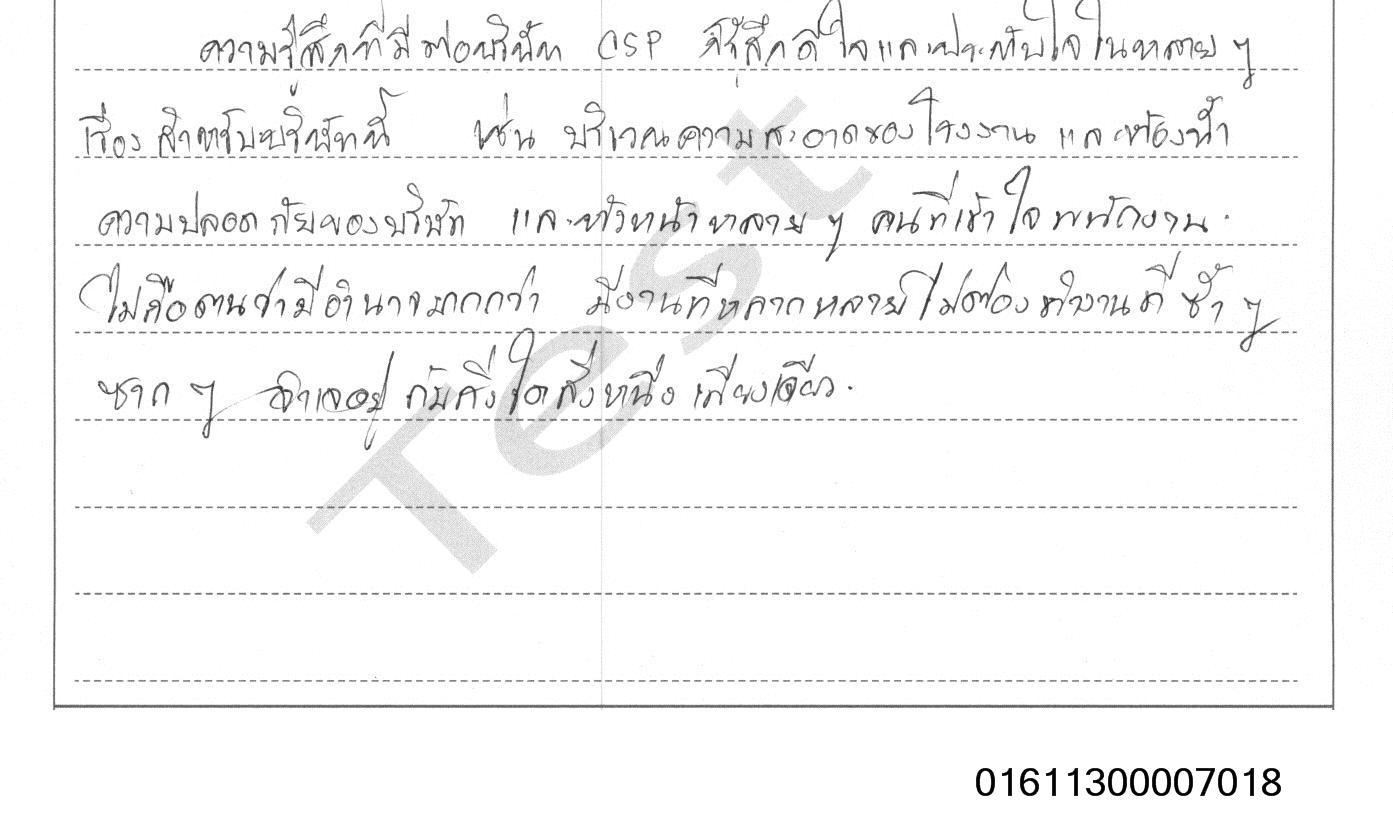 ความรู้สึกที่มีต่อบริษัท CSP ก็รู้สึกดีใจและประทับใจในหลายๆ
เรื่องสำหรับบริษัทนี้ เช่น บริเวณความสะอาดของโรงงาน และห้องน้ำ
ความปลอดภัยของบริษัท และหัวหน้าหลายๆ คนที่เข้าใจพนักงาน.
ไม่ถือตนว่ามีอำนาจมากกว่า มีงานที่หลากหลายไม่ต้องทำงานที่ซ้ำๆ
ซากๆ จำเจอยู่กับสิ่งใดสิ่งหนึ่งเพียงเดียว.
Test
01611300007018